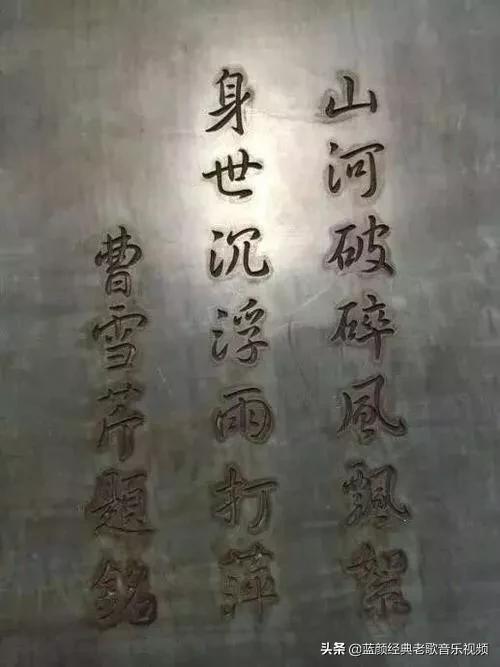 山河破碎風飄絮
身世沉浮雨打萍
曹雪芹題銘
头条 @蓝颜经典老歌音乐视频